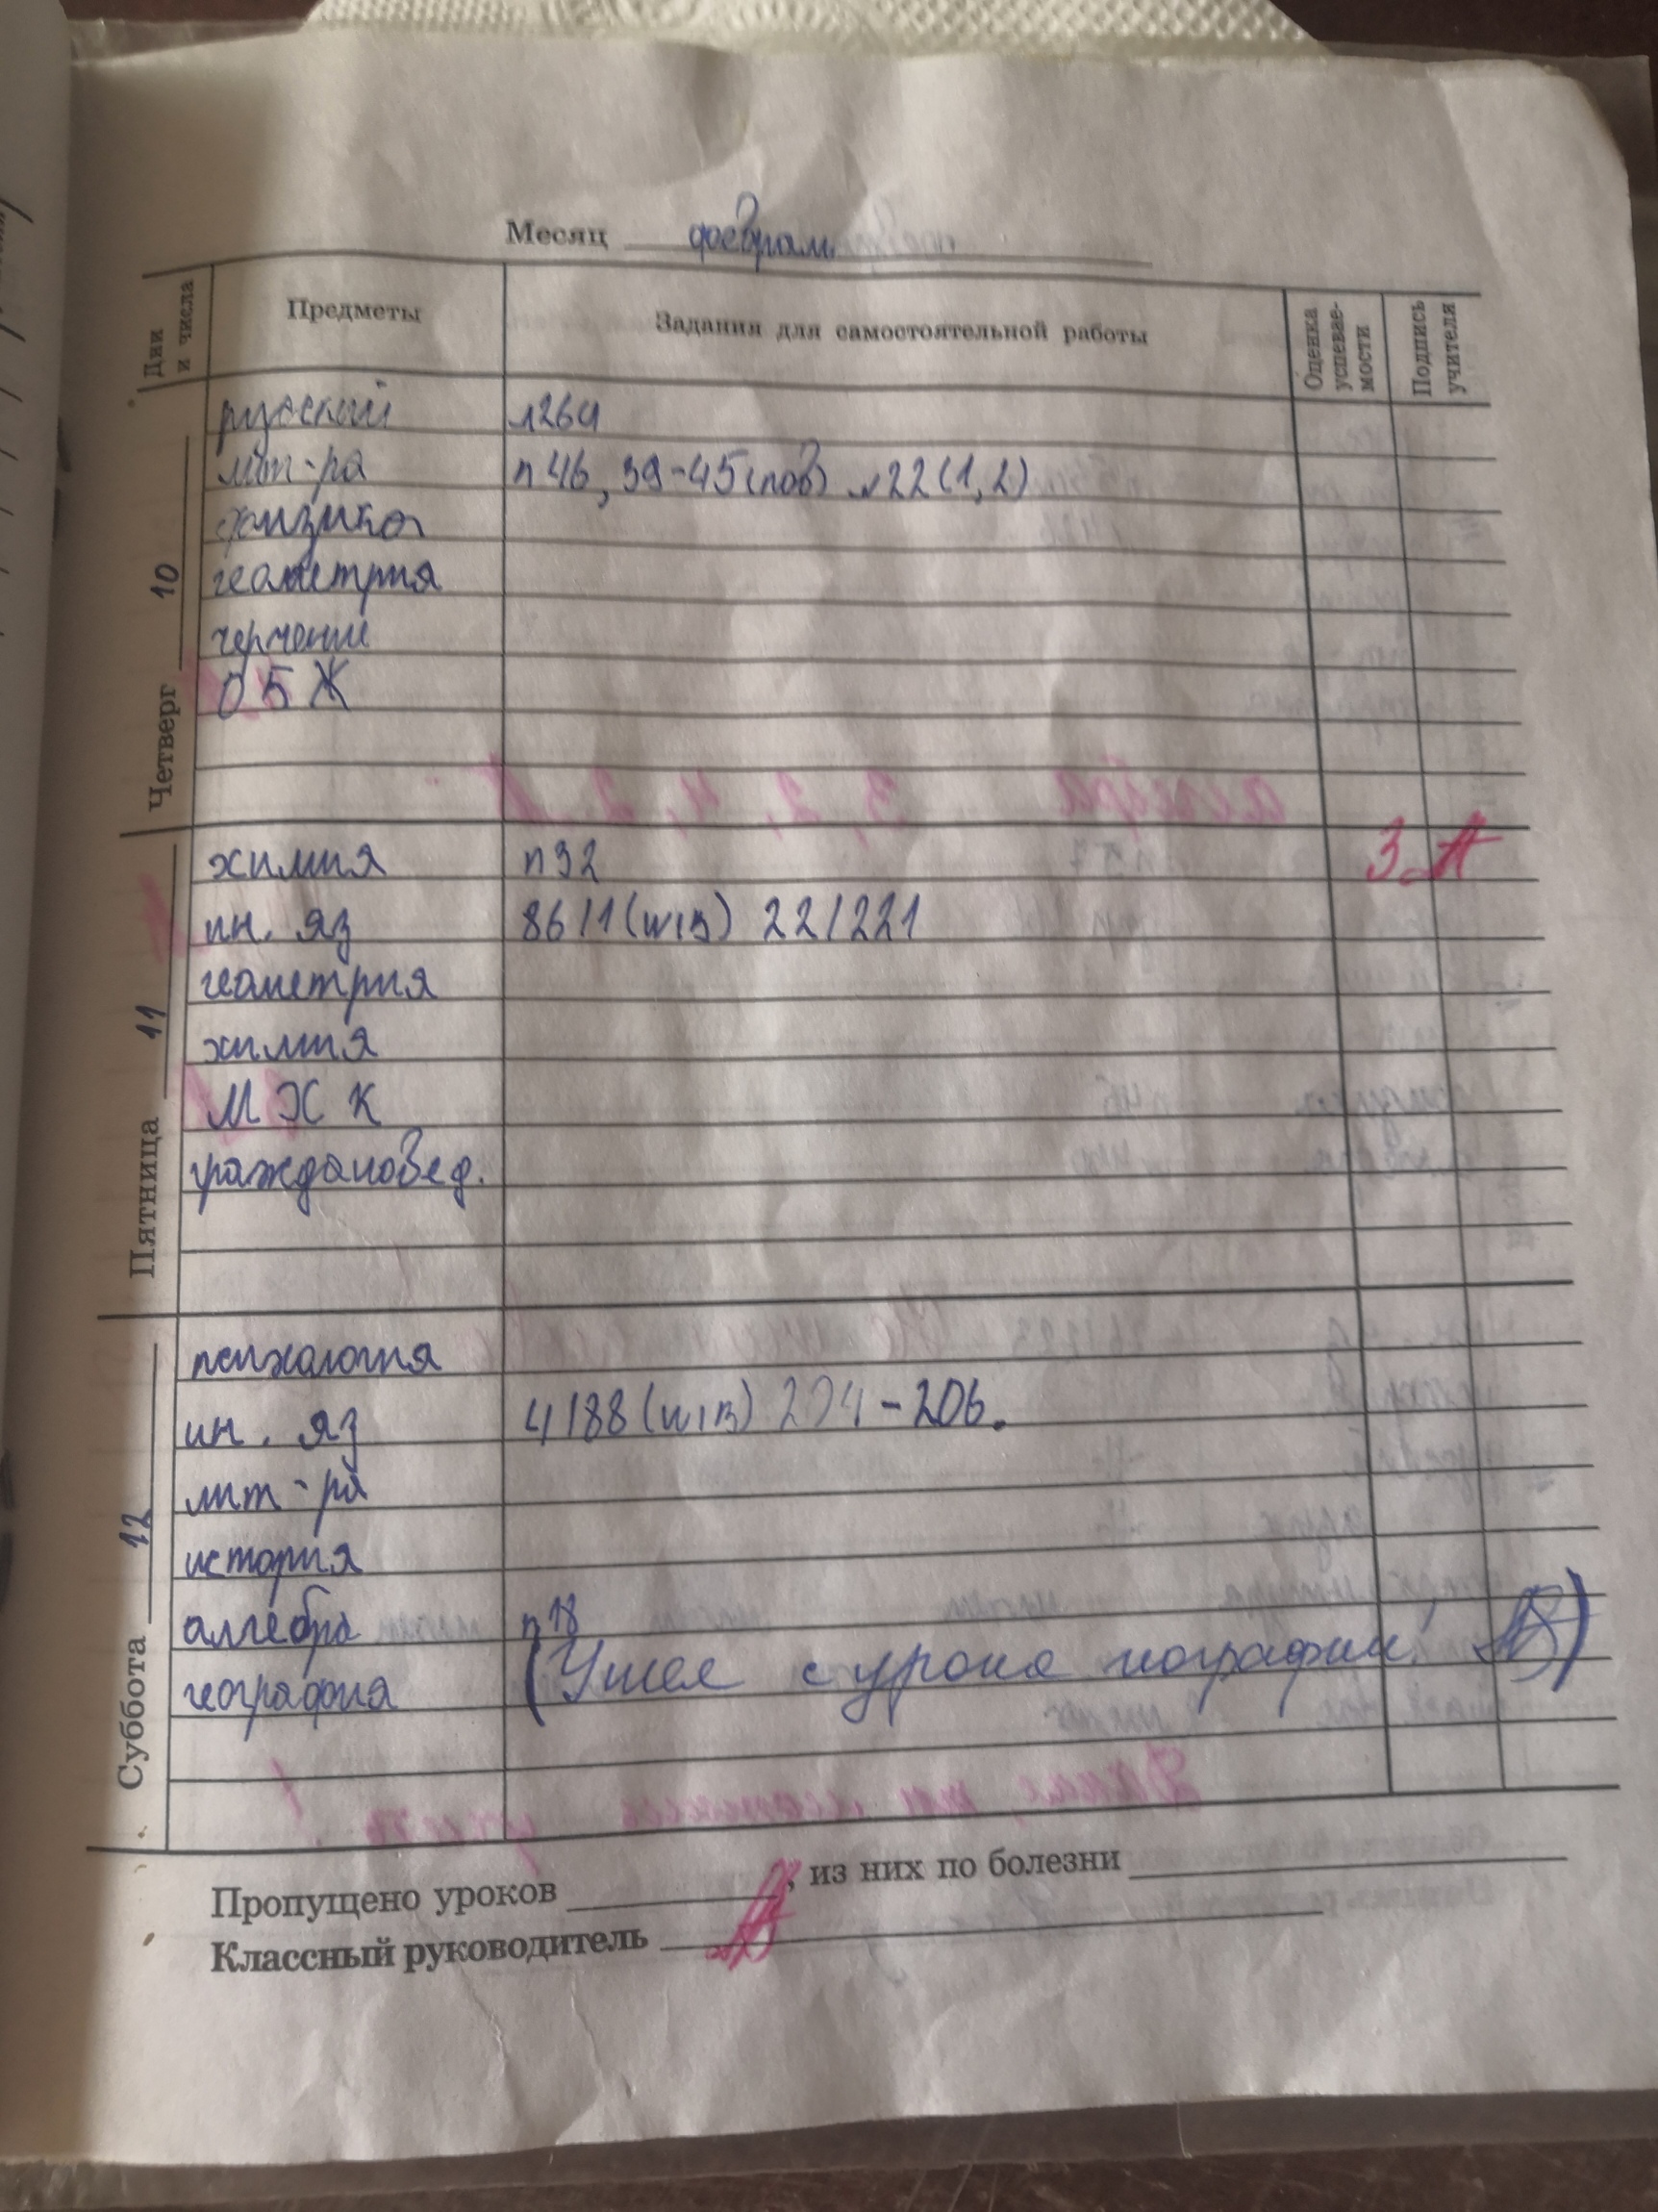 Месяц февраль
Дни и числа Предметы Задания для самостоятельной работы Оценка успевае-мости Подпись учителя
Четверг 10
русский 264
лит-ра п 46, 39-45(пов) 22(1,2)
физика
геометрия
черчение
ОБЖ
Пятница 11
химия п32 3
ин. яз 86/1(WB) 22/221
геометрия
химия
МХК
граждановед.
Суббота 12
психология
ин. яз 4/88(WB) 204-206.
лит-ра
история
алгебра п18
география (Ушел с урока географии!)
Пропущено уроков , из них по болезни
Классный руководитель